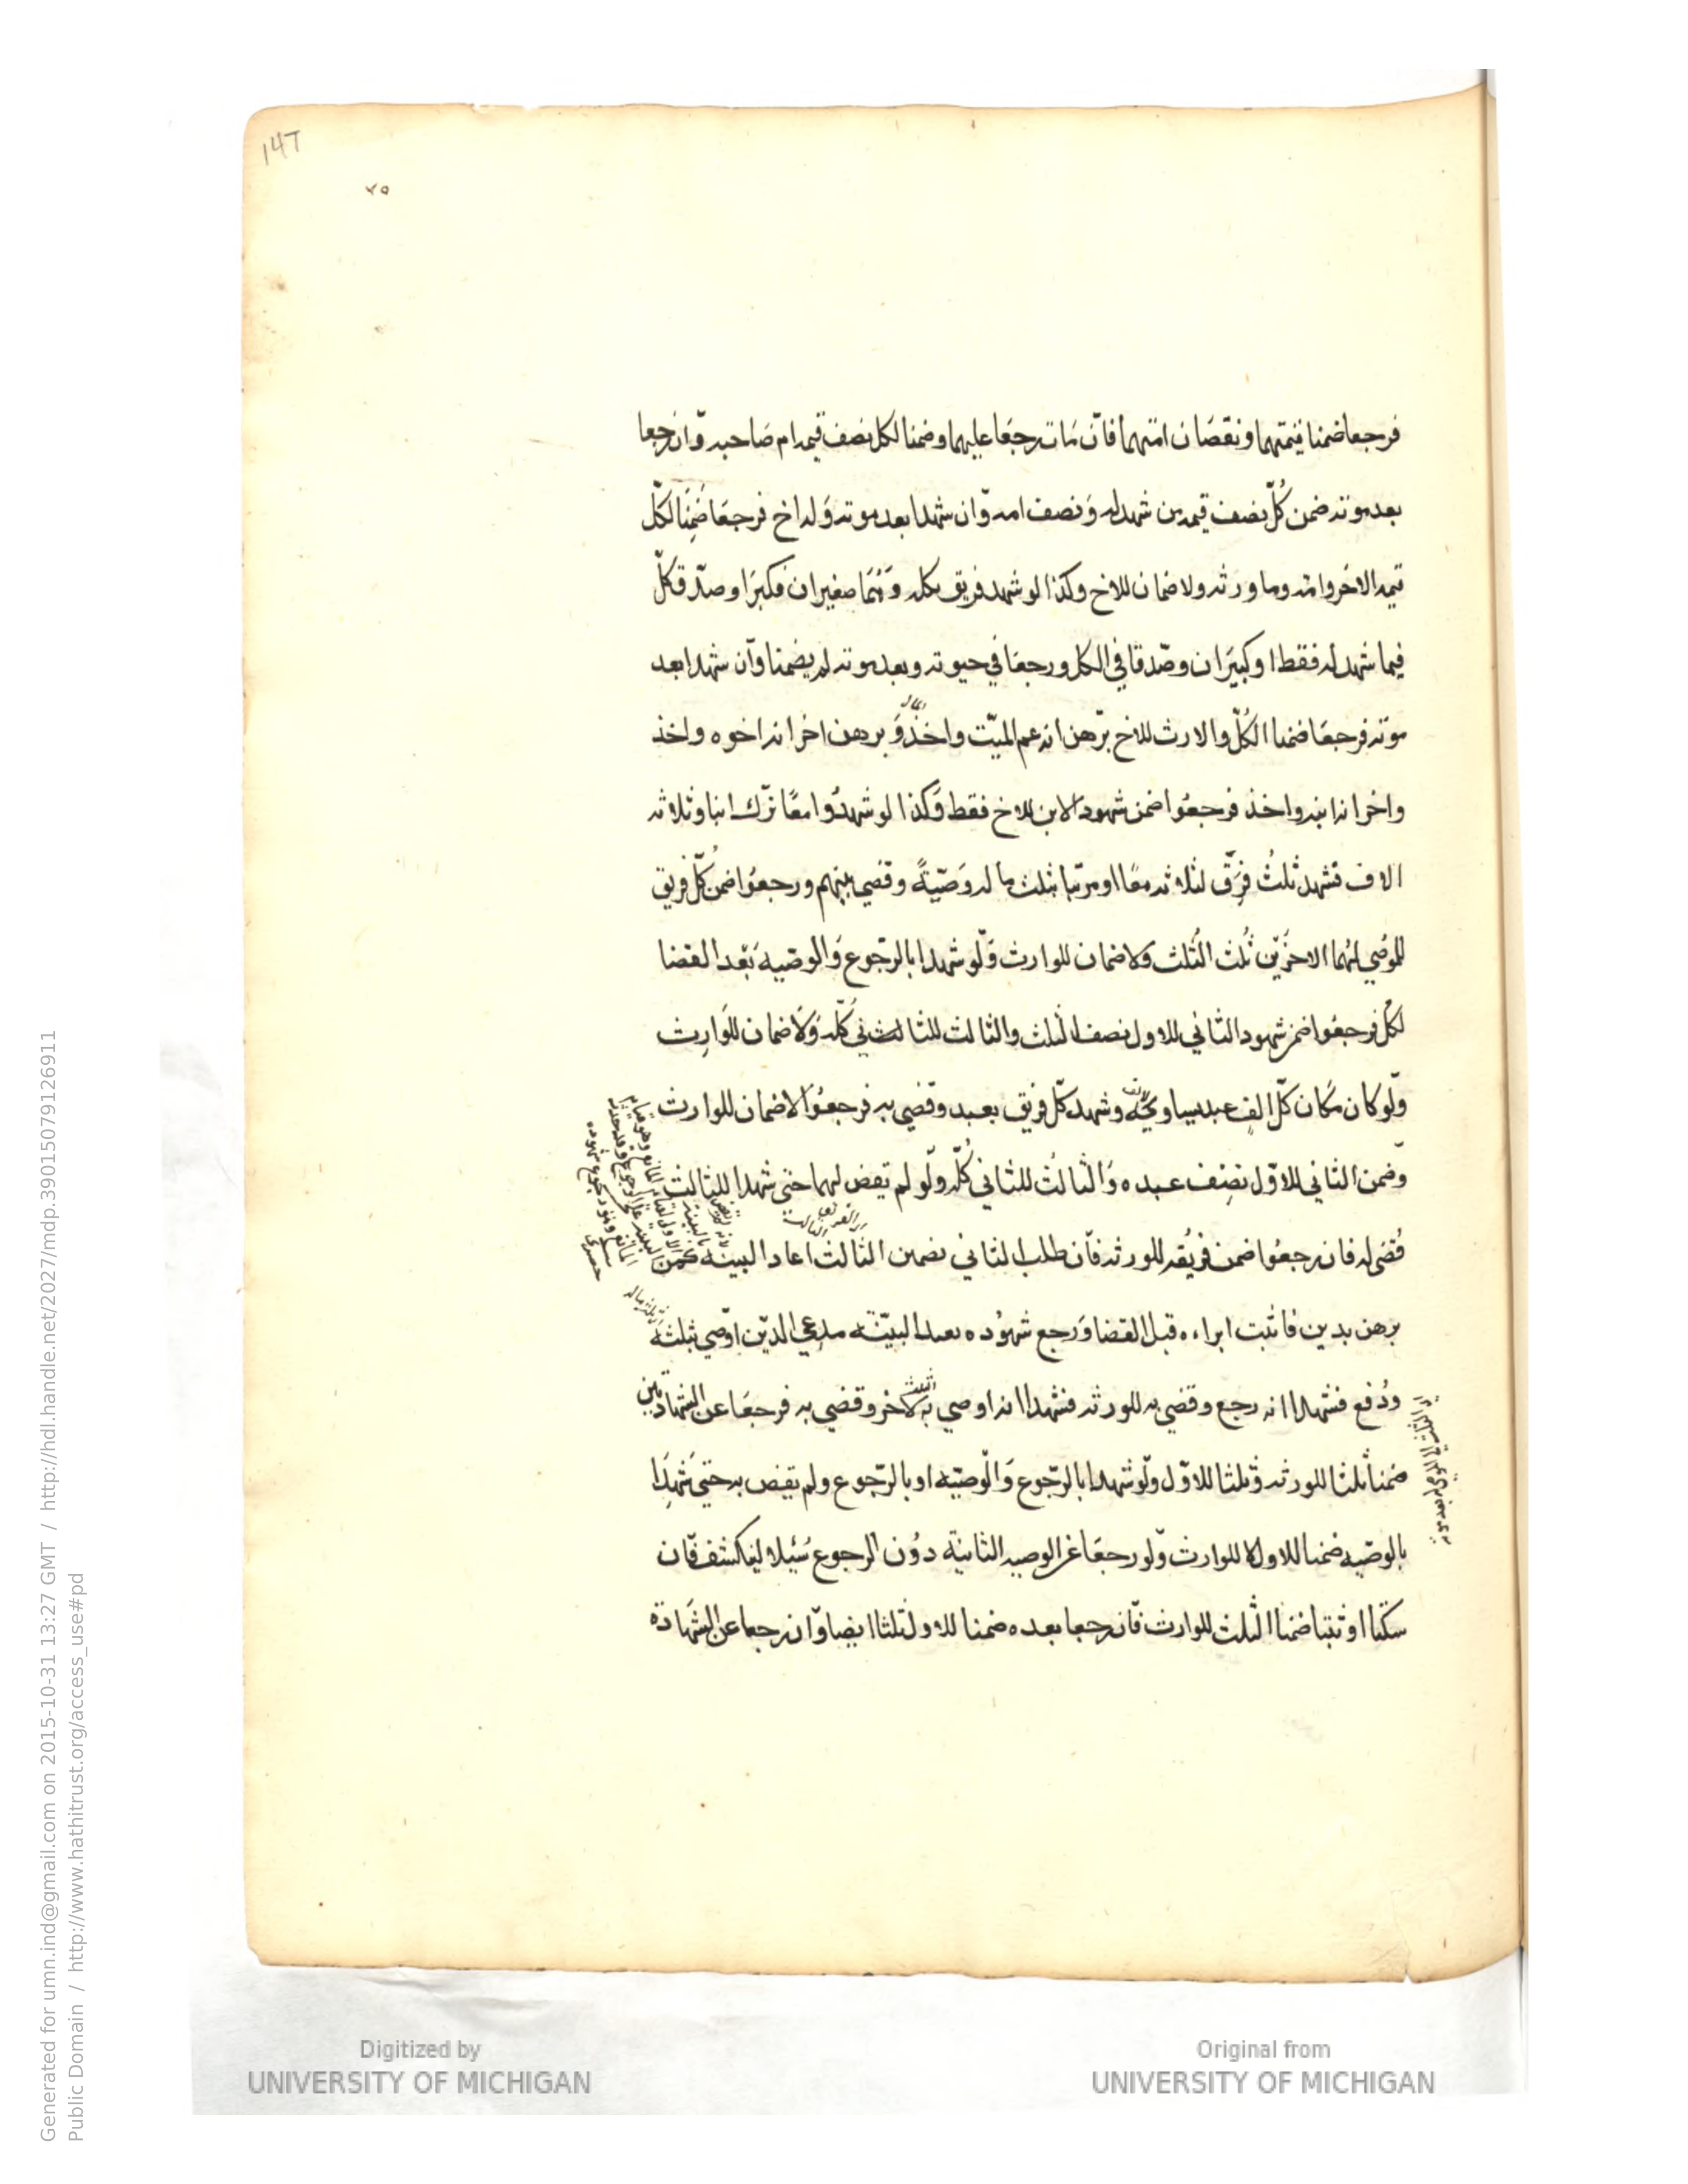 147
٧٥
فرجعا ضمنا قيمتهما ونقصان امتهما فان مات رجعا عليهما وضمنا لكل نصف قيمه ام صاحبه وان رجعا
بعد موته ضمن كل نصف قيمه من شهد له ونصف امه وان شهدا بعد موته وله اخ فرجعا ضمنا لكل
قيمه الاخر وامه وما ورثه ولا ضمان للاخ وكذا لو شهد فريق بكل وهما صغيران فكبرا وصدق كل
فيما شهد له فقط او كبيران وصدقا في الكل ورجعا في حيوته وبعد موته لم يضمنا وان شهدا بعد
موته فرجعا ضمنا الكل والارث للاخ برهن انه عم الميت واخذ وبرهن اخر انه اخوه واخذ
واخر انه ابنه واخذ فرجعوا ضمن شهود الابن للاخ فقط وكذا لو شهدوا معا ترك ابنا وثلاثه
الاف فشهد ثلث فرق لثلاثه معا او مرتبا بثلث ماله وصية وقضي بينهم ورجعوا ضمن كل فريق
للموصي لهما الاخرين ثلث الثلث ولا ضمان للوارث ولو شهدا بالرجوع والوصيه بعد القضا
لكل فرجعوا ضمن شهود الثاني للاول نصف الثلث والثالث للثاني كله ولا ضمان للوارث
ولو كان مكان كل الف عبد يساويه وشهد كل فريق بعبد وقضي به فرجعوا لا ضمان للوارث
وضمن الثاني للاول نصف عبده والثالث للثاني كله ولو لم تقض لهما حتى شهدا للثالث
قضى له فان رجعوا ضمن فريقه للورثه فان طلب الثاني تضمين الثالث اعاد البينه
برهن بدين فاثبت ابراءه قبل القضا ورجع شهوده بعد البينه مدعي الدين اوصي بثلثه
ودفع فشهدا انه رجع وقضي به للورثه فشهدا انه اوصي به لاخر وقضي به فرجعا عن الشهادتين
ضمنا ثلثا للورثه وثلثا للاول ولو شهدا بالرجوع والوصيه او بالرجوع ولم تقض به حتي شهدا
بالوصيه ضمنا للاول لا للوارث ولو رجعا عن الوصيه الثانية دون الرجوع سئلا لينكشف فان
سكتا او ثبتا ضمنا الثلث للوارث فان رجعا بعده ضمنا للاول ثلثا ايضا وان رجعا عن الشهادة
Digitized by
UNIVERSITY OF MICHIGAN
Original from
UNIVERSITY OF MICHIGAN
Generated for umn.ind@gmail.com on 2015-10-31 13:27 GMT / http://hdl.handle.net/2027/mdp.39015079126911
Public Domain / http://www.hathitrust.org/access_use#pd